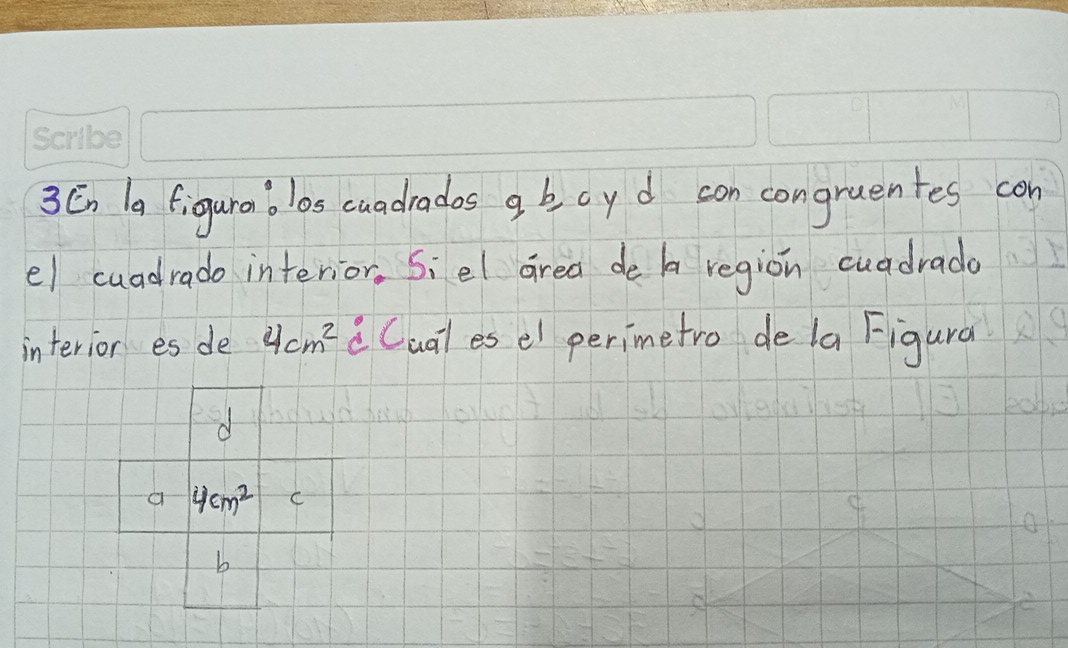 Scribe
D M A
3 En la figura: los cuadrados a b, c y d son congruentes con
el cuadrado interior. Si el área de la región cuadrado
interior es de 4cm² ¿Cuál es el perímetro de la Figura
d
a 4cm² c
b